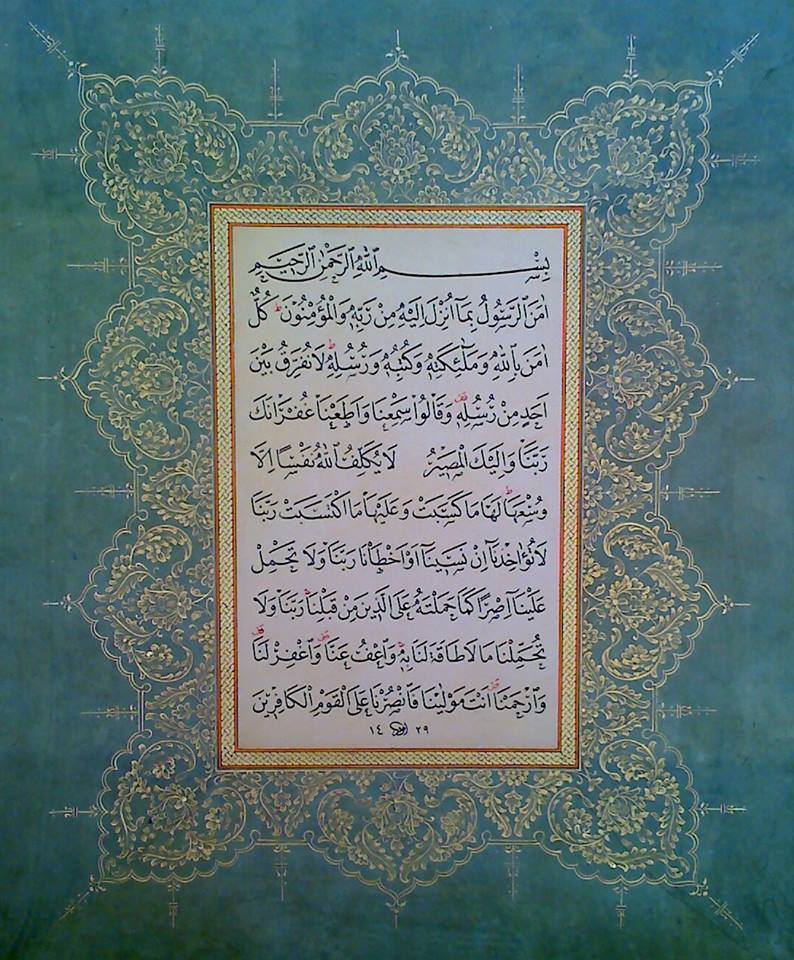 بِسْمِ ٱللّٰهِ ٱلرَّحْمٰنِ ٱلرَّحِيمِ
اٰمَنَ ٱلرَّسُولُ بِمَٓا اُنْزِلَ اِلَيْهِ مِنْ رَبِّهٖ وَالْمُؤْمِنُونَۜ كُلٌّ
اٰمَنَ بِٱللّٰهِ وَمَلٰٓئِكَتِهٖ وَكُتُبِهٖ وَرُسُلِهٖۜ لَا نُفَرِّقُ بَيْنَ
اَحَدٍ مِنْ رُسُلِهٖۚ وَقَالُوا سَمِعْنَا وَاَطَعْنَا غُفْرَانَكَ
رَبَّنَا وَاِلَيْكَ الْمَصِيرُ لَا يُكَلِّفُ ٱللّٰهُ نَفْسًا اِلَّا
وُسْعَهَاۜ لَهَا مَا كَسَبَتْ وَعَلَيْهَا مَا اكْتَسَبَتْ رَبَّنَا
لَا تُؤَاخِذْنَٓا اِنْ نَسِينَٓا اَوْ اَخْطَأْنَا رَبَّنَا وَلَا تَحْمِلْ
عَلَيْنَٓا اِصْرًا كَمَا حَمَلْتَهُ عَلَى الَّذِينَ مِنْ قَبْلِنَاۚ رَبَّنَا وَلَا
تُحَمِّلْنَا مَا لَا طَاقَةَ لَنَا بِهٖۚ وَٱعْفُ عَنَّا۠ وَٱغْفِرْ لَنَا۠
وَٱرْحَمْنَا۠ اَنْتَ مَوْلٰينَا فَانْصُرْنَا عَلَى الْقَوْمِ الْكَافِرِينَ
١٤ ٢٩